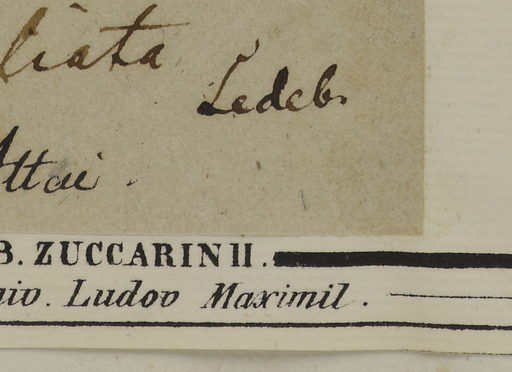 liata
Ledeb.
Attai.
B. ZUCCARINII.
niv. Ludov Maximil.